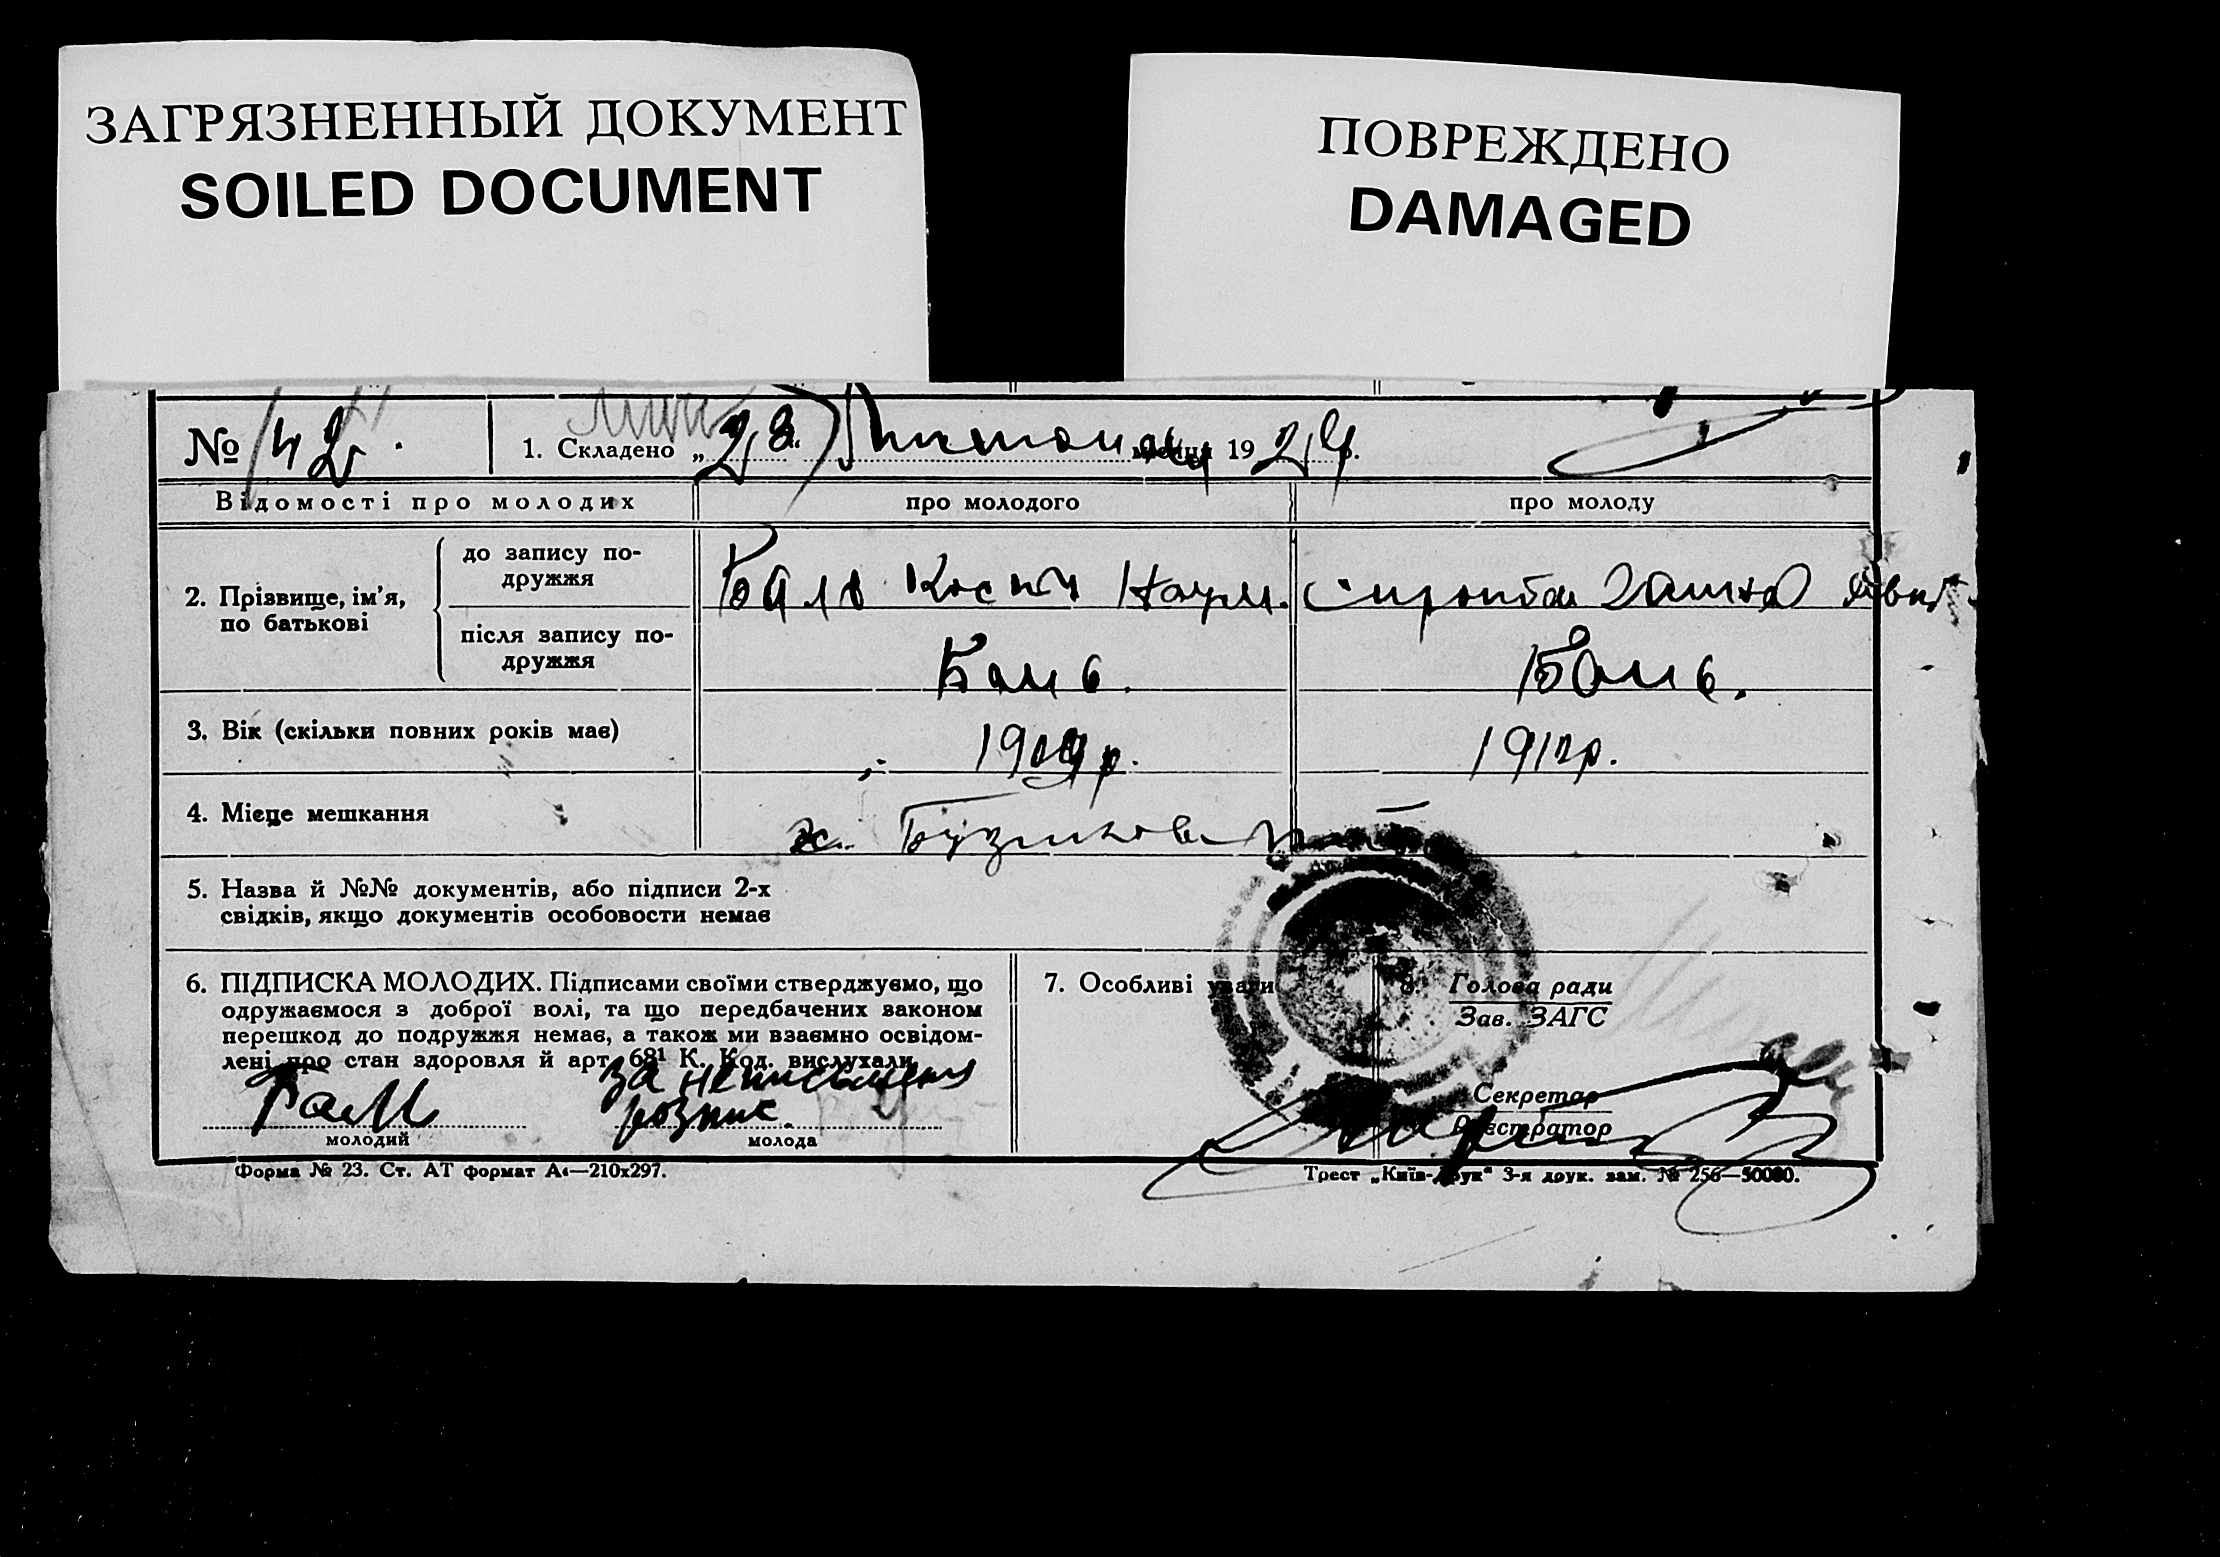 ЗАГРЯЗНЕННЫЙ ДОКУМЕНТ
SOILED DOCUMENT
ПОВРЕЖДЕНО
DAMAGED
№ 42. 1. Складено „28“ місяця 1929 р.
Відомості про молодих про молодого про молоду
2. Прізвище, ім'я, по батькові
до запису подружжя Наум.
після запису подружжя Баль. Баль.
3. Вік (скільки повних років має) 1909 р. 191
4. Місце мешкання х.
5. Назва й №№ документів, або підписи 2-х
свідків, якщо документів особовости немає
6. ПІДПИСКА МОЛОДИХ. Підписами своїми стверджуємо, що
одружаємося з доброї волі, та що передбачених законом
перешкод до подружжя немає, а також ми взаємно освідом-
лені про стан здоровля й арт. 68¹ К. Код. вислухали
за неписьменн
розпис.
молодий молода
7. Особливі уваги
8. Голова ради
Зав. ЗАГС
Секретар
Реєстратор
Форма № 23. Ст. АТ формат А4—210х297.
Трест „Київ-Друк“ 3-я друк. зам. № 256—50000.